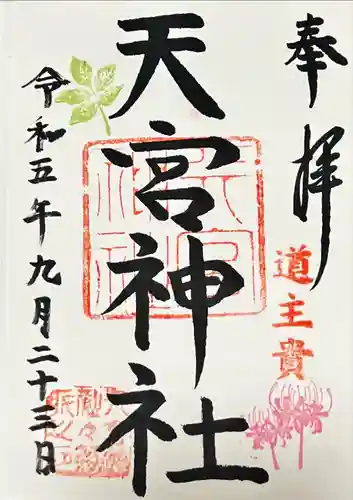 奉拝
道主貴
天宮神社
令和五年九月二十三日